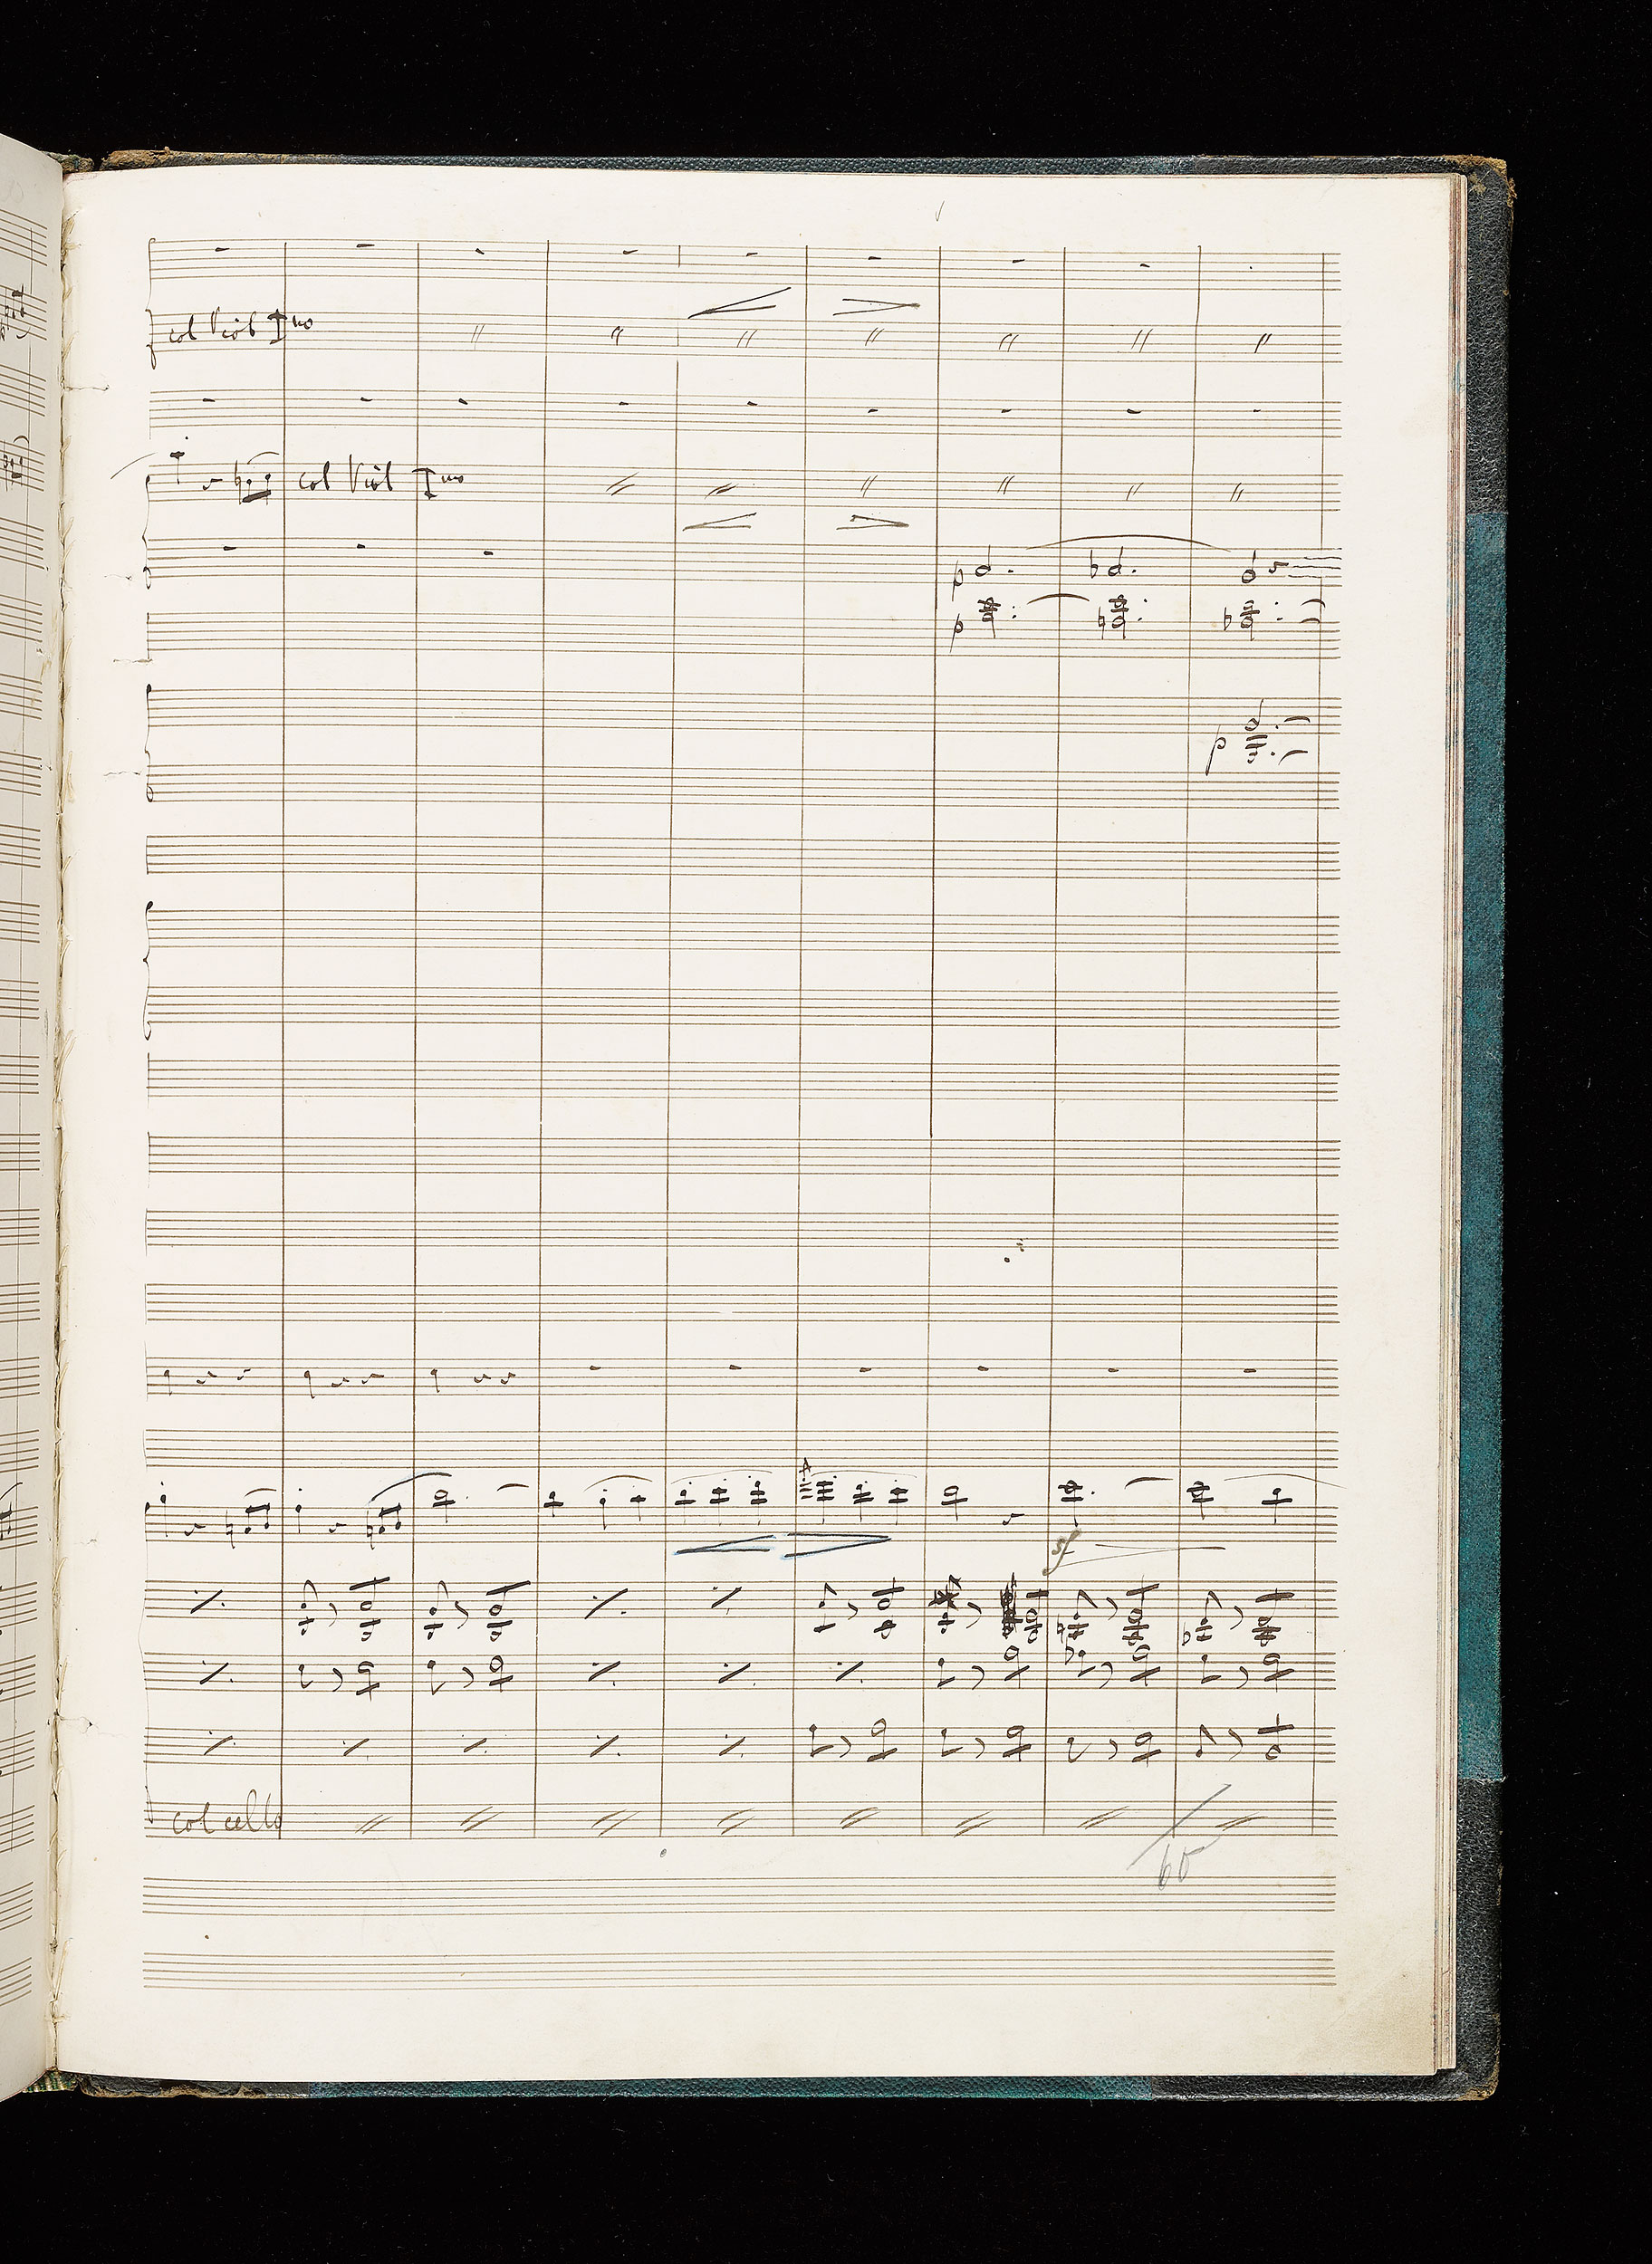 col Viol Imo
col Viol Imo
p
p
p
sf
col cello
60